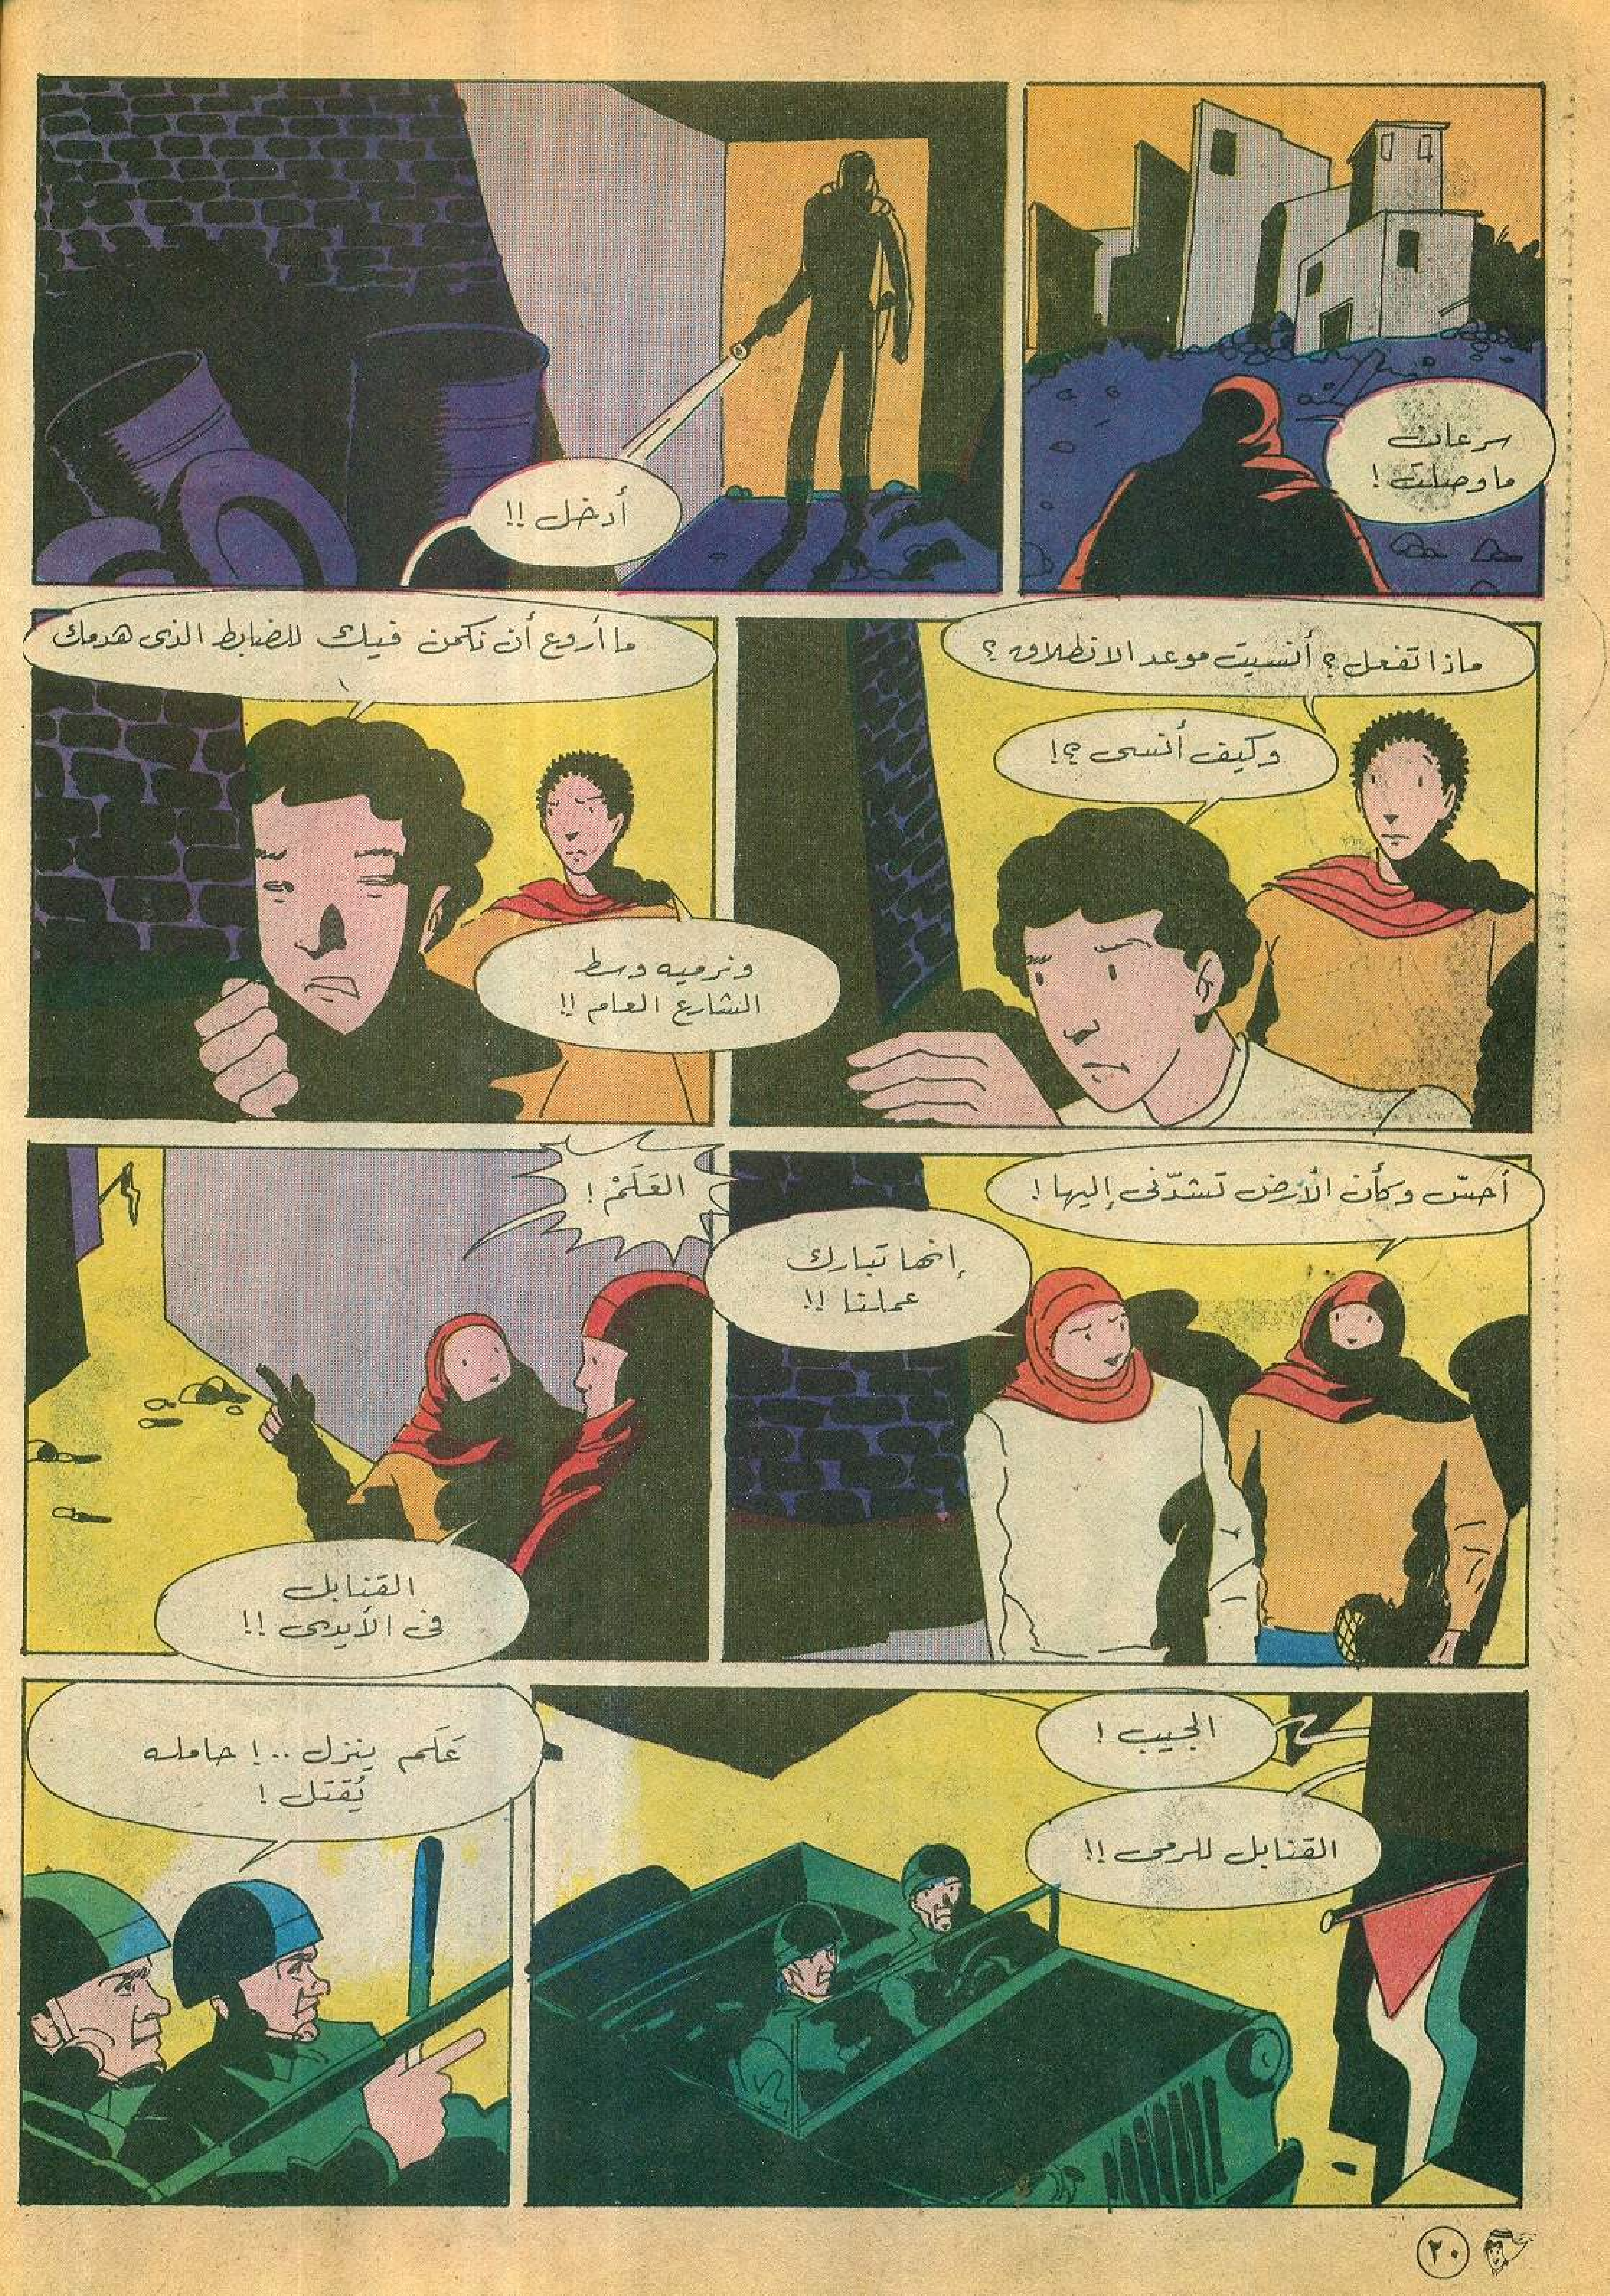 سرعان
ما وصلت !
أدخل !!
ماذا تفعل ؟ أنسيت موعد الانطلاق ؟
وكيف أنسى ؟!
ما أروع أن نكمن فيك للضابط الذى هدمك
ونرميه وسط
الشارع العام !!
أحسّ وكأن الأرض تشدّنى إليها !
إنها تبارك
عملنا !!
العَلَمْ !
القنابل
فى الأيدى !!
الجيب !
القنابل للرمى !!
عَلَم ينزل ..! حامله
يُقتل !
٢٠